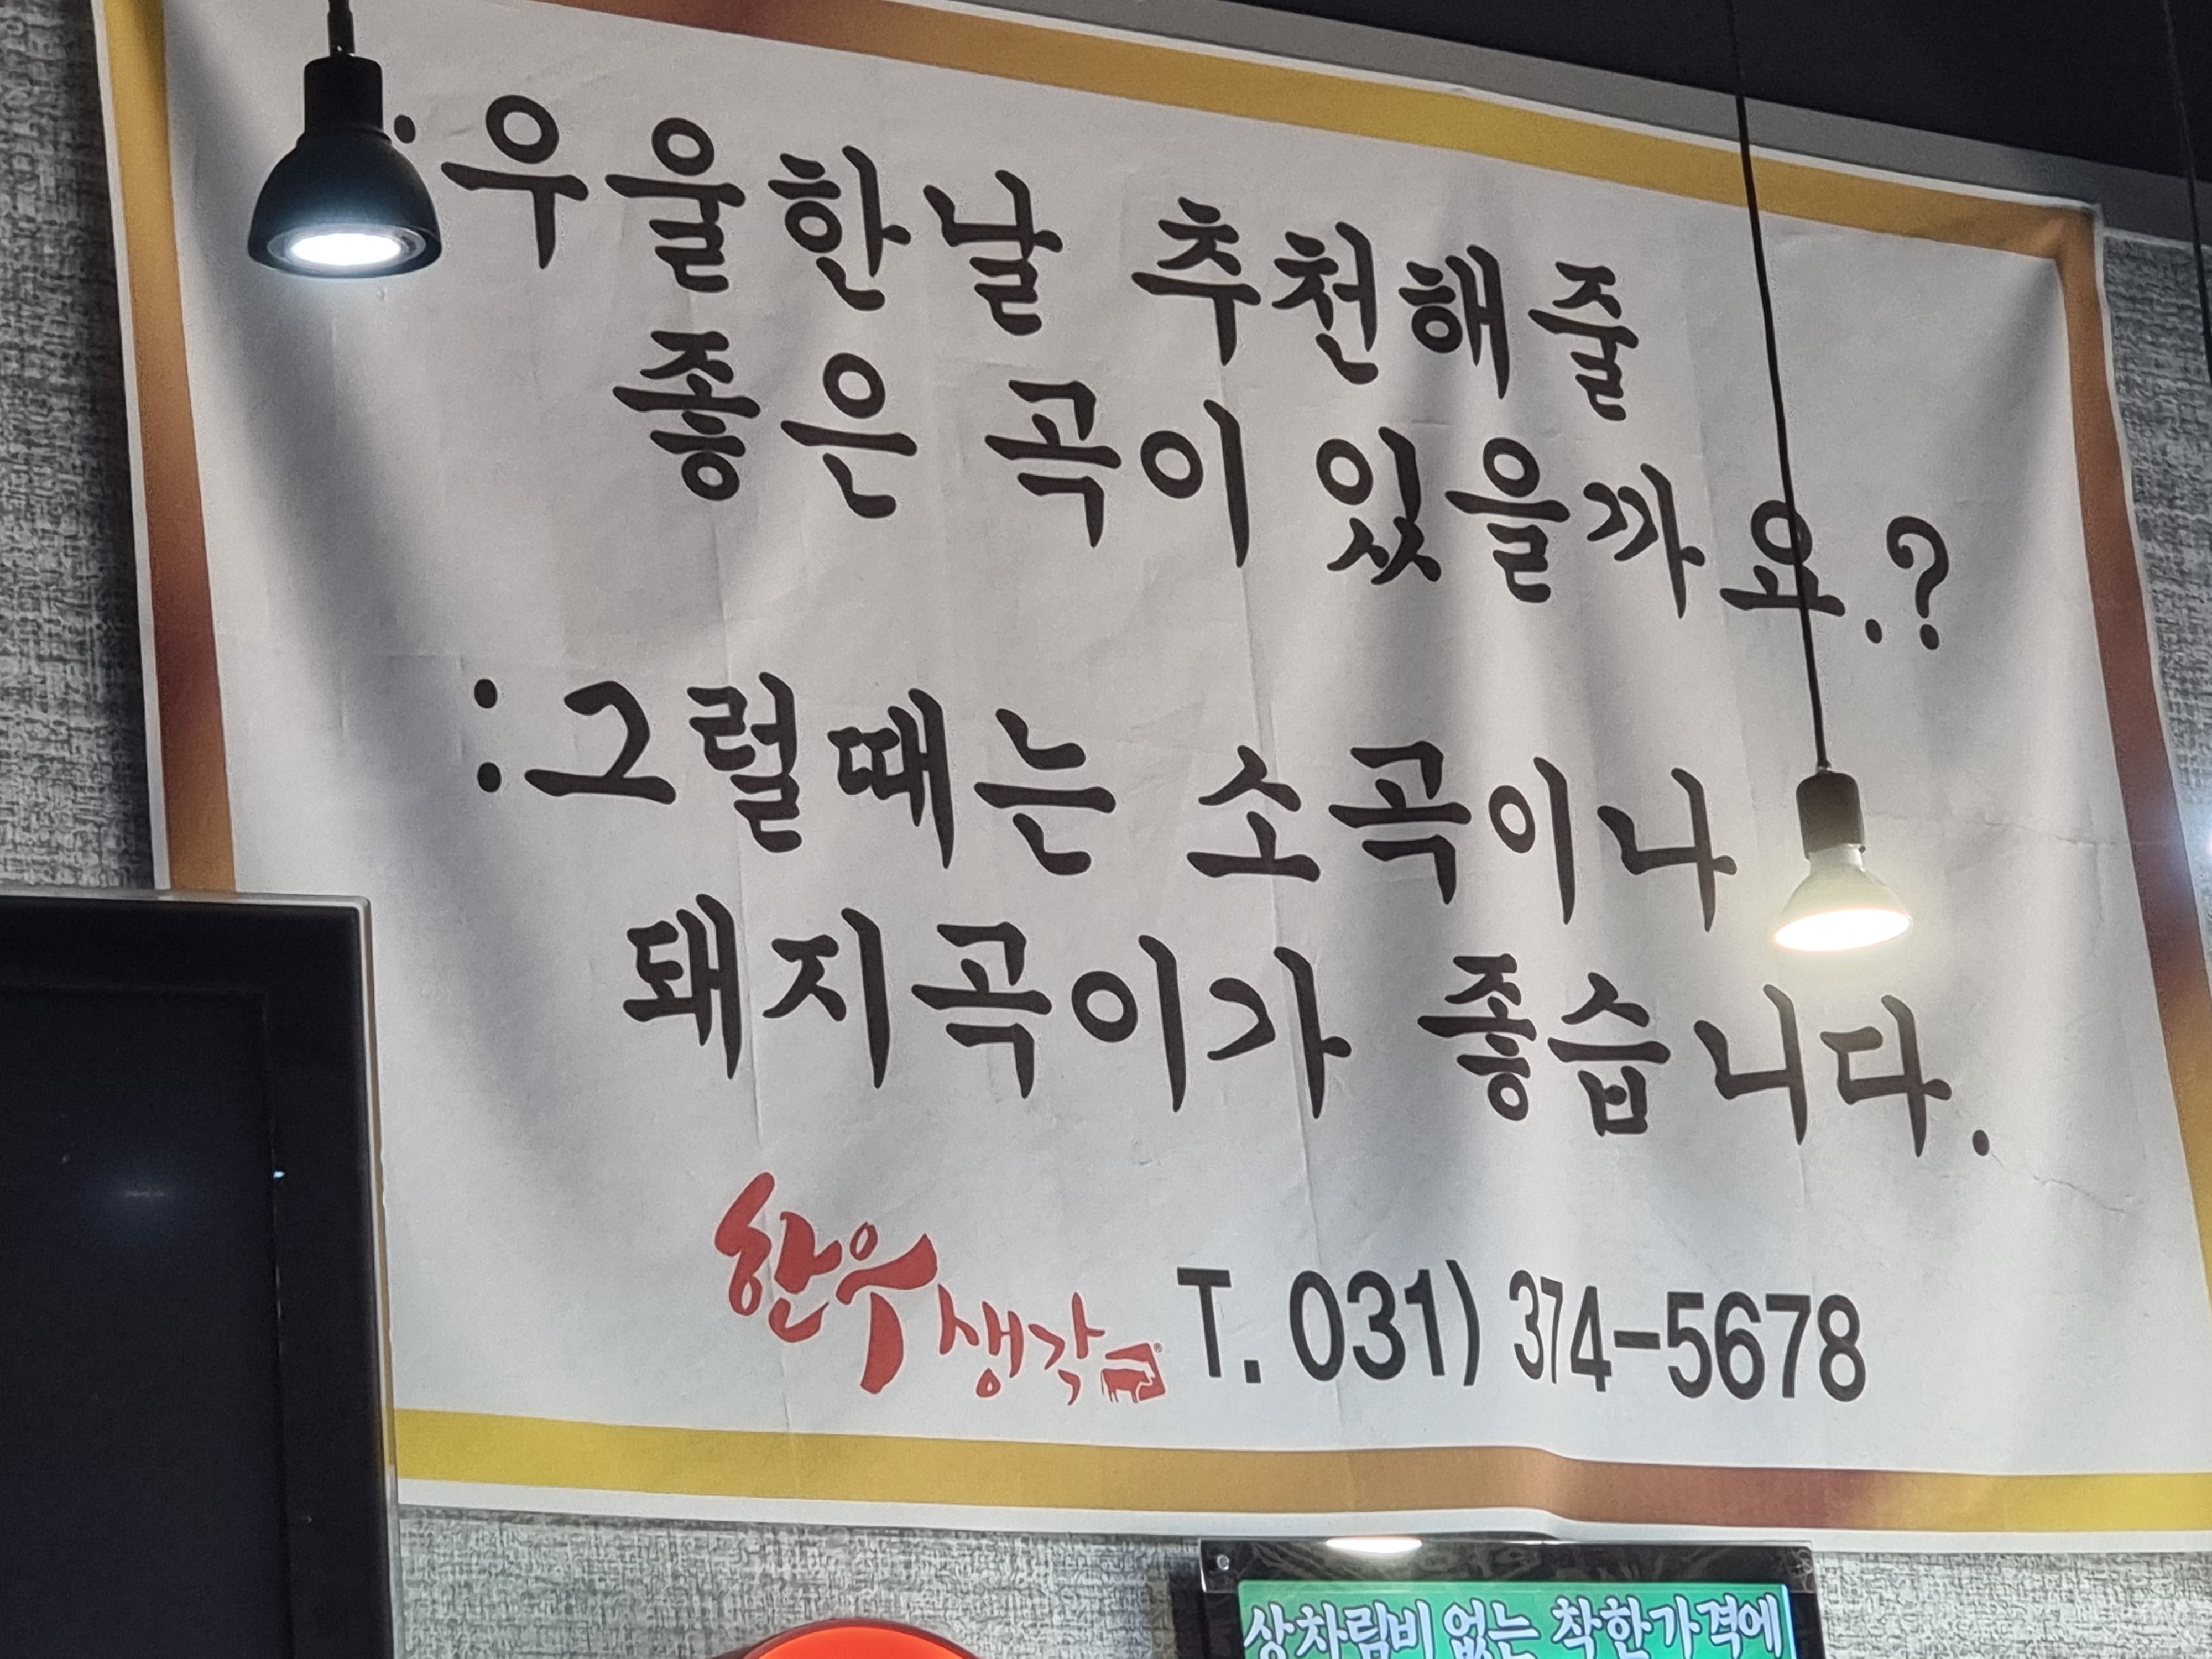 :우울한날 추천해줄
좋은 곡이 있을까요.?
:그럴때는 소곡이나
돼지곡이가 좋습니다.
한우생각 T. 031) 374-5678
상차림비 없는 착한가격에